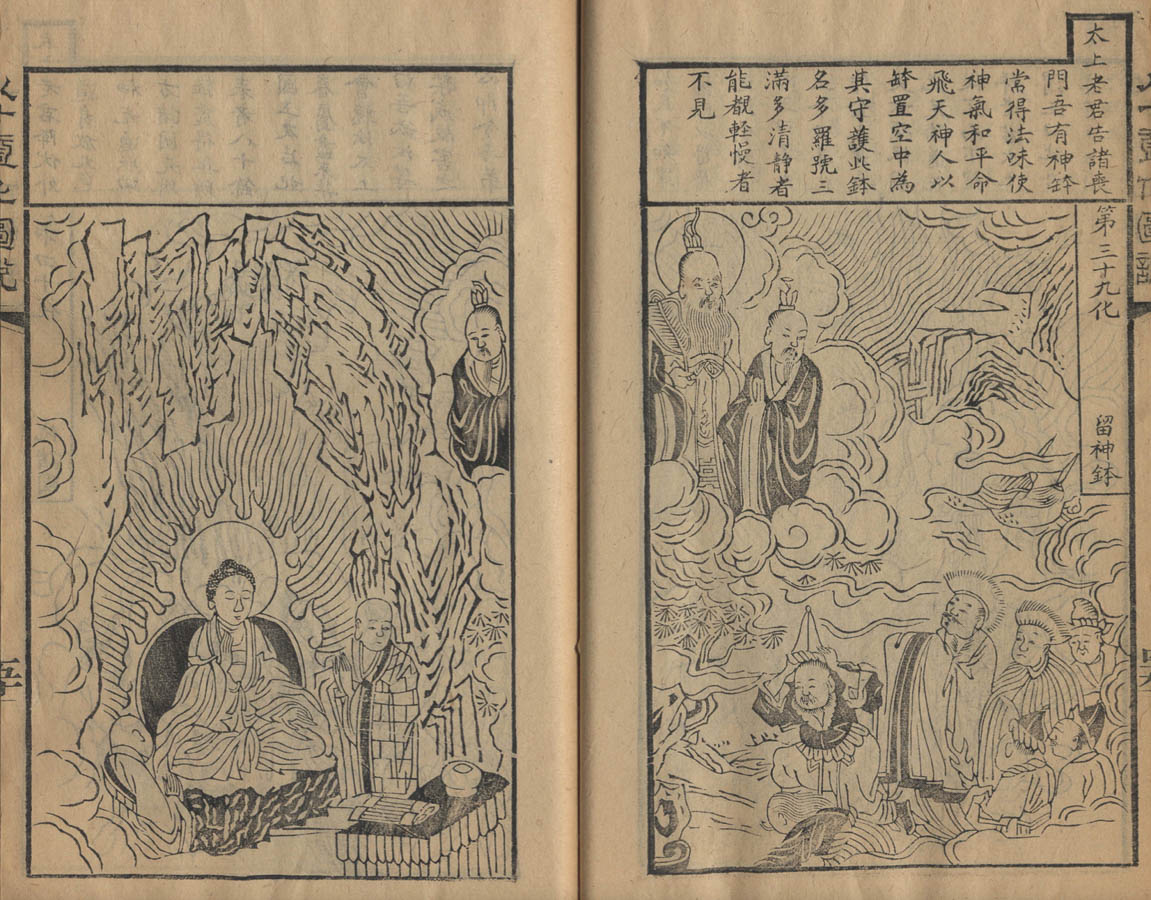 太上老君告諸喪
門吾有神缽
常得法味使
神氣和平命
飛天神人以
缽置空中為
其守護此缽
名多羅號三
滿多清静者
能覩輕慢者
不見
第三十九化
留神缽
八十壹化圖說